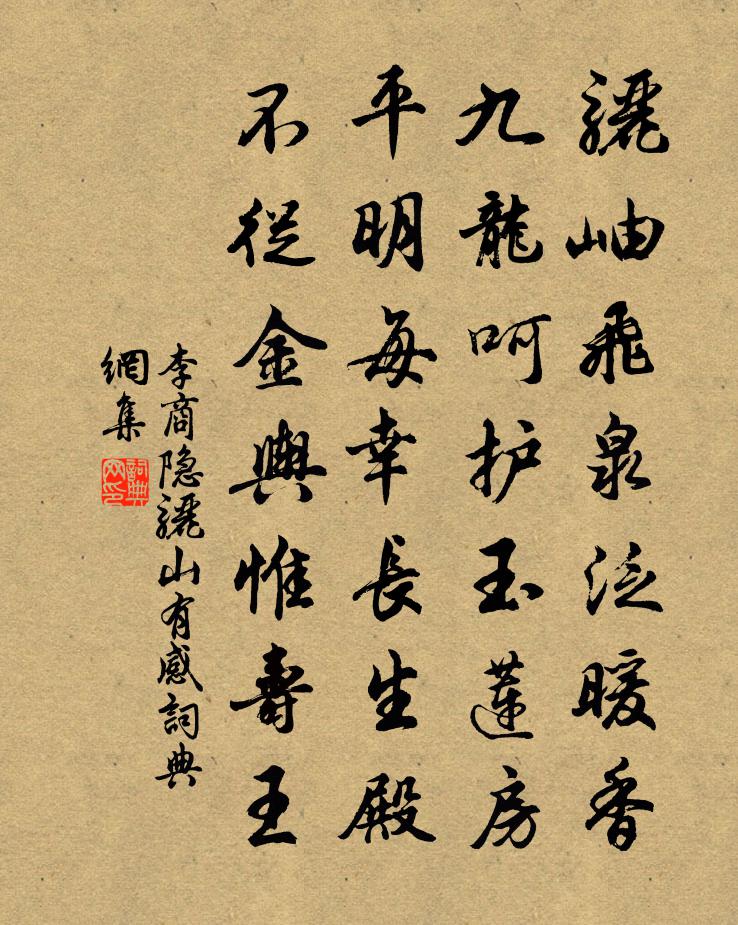 驪岫飛泉泛暖香
九龍呵护玉蓮房
平明每幸長生殿
不從金輿惟壽王
李商隐驪山有感詞典
網集
詞典網印